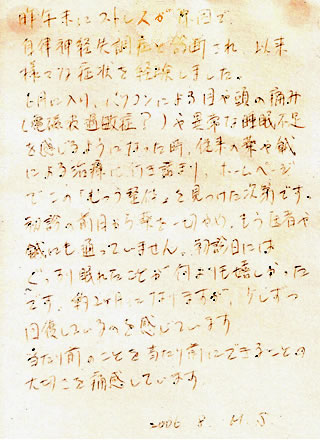 昨年末にストレスが原因で、
自律神経失調症と診断され、以来
様々な症状を経験しました。
6月に入り、パソコンによる目や頭の痛み
(電磁波過敏症?)や異常な睡眠不足
を感じるようになった時、従来の薬や鍼
による治療に行き詰まり、ホームページ
でこの「むつう整体」を見つけた次第です。
初診の前日から薬を一切やめ、もう医者や
鍼にも通っていません。初診日には
ぐっすり眠れたことが何よりも嬉しかった
です。約2ヶ月になりますが、少しずつ
回復しているのを感じています
当たり前のことを当たり前にできることの
大切さを痛感しています
2006. 8.